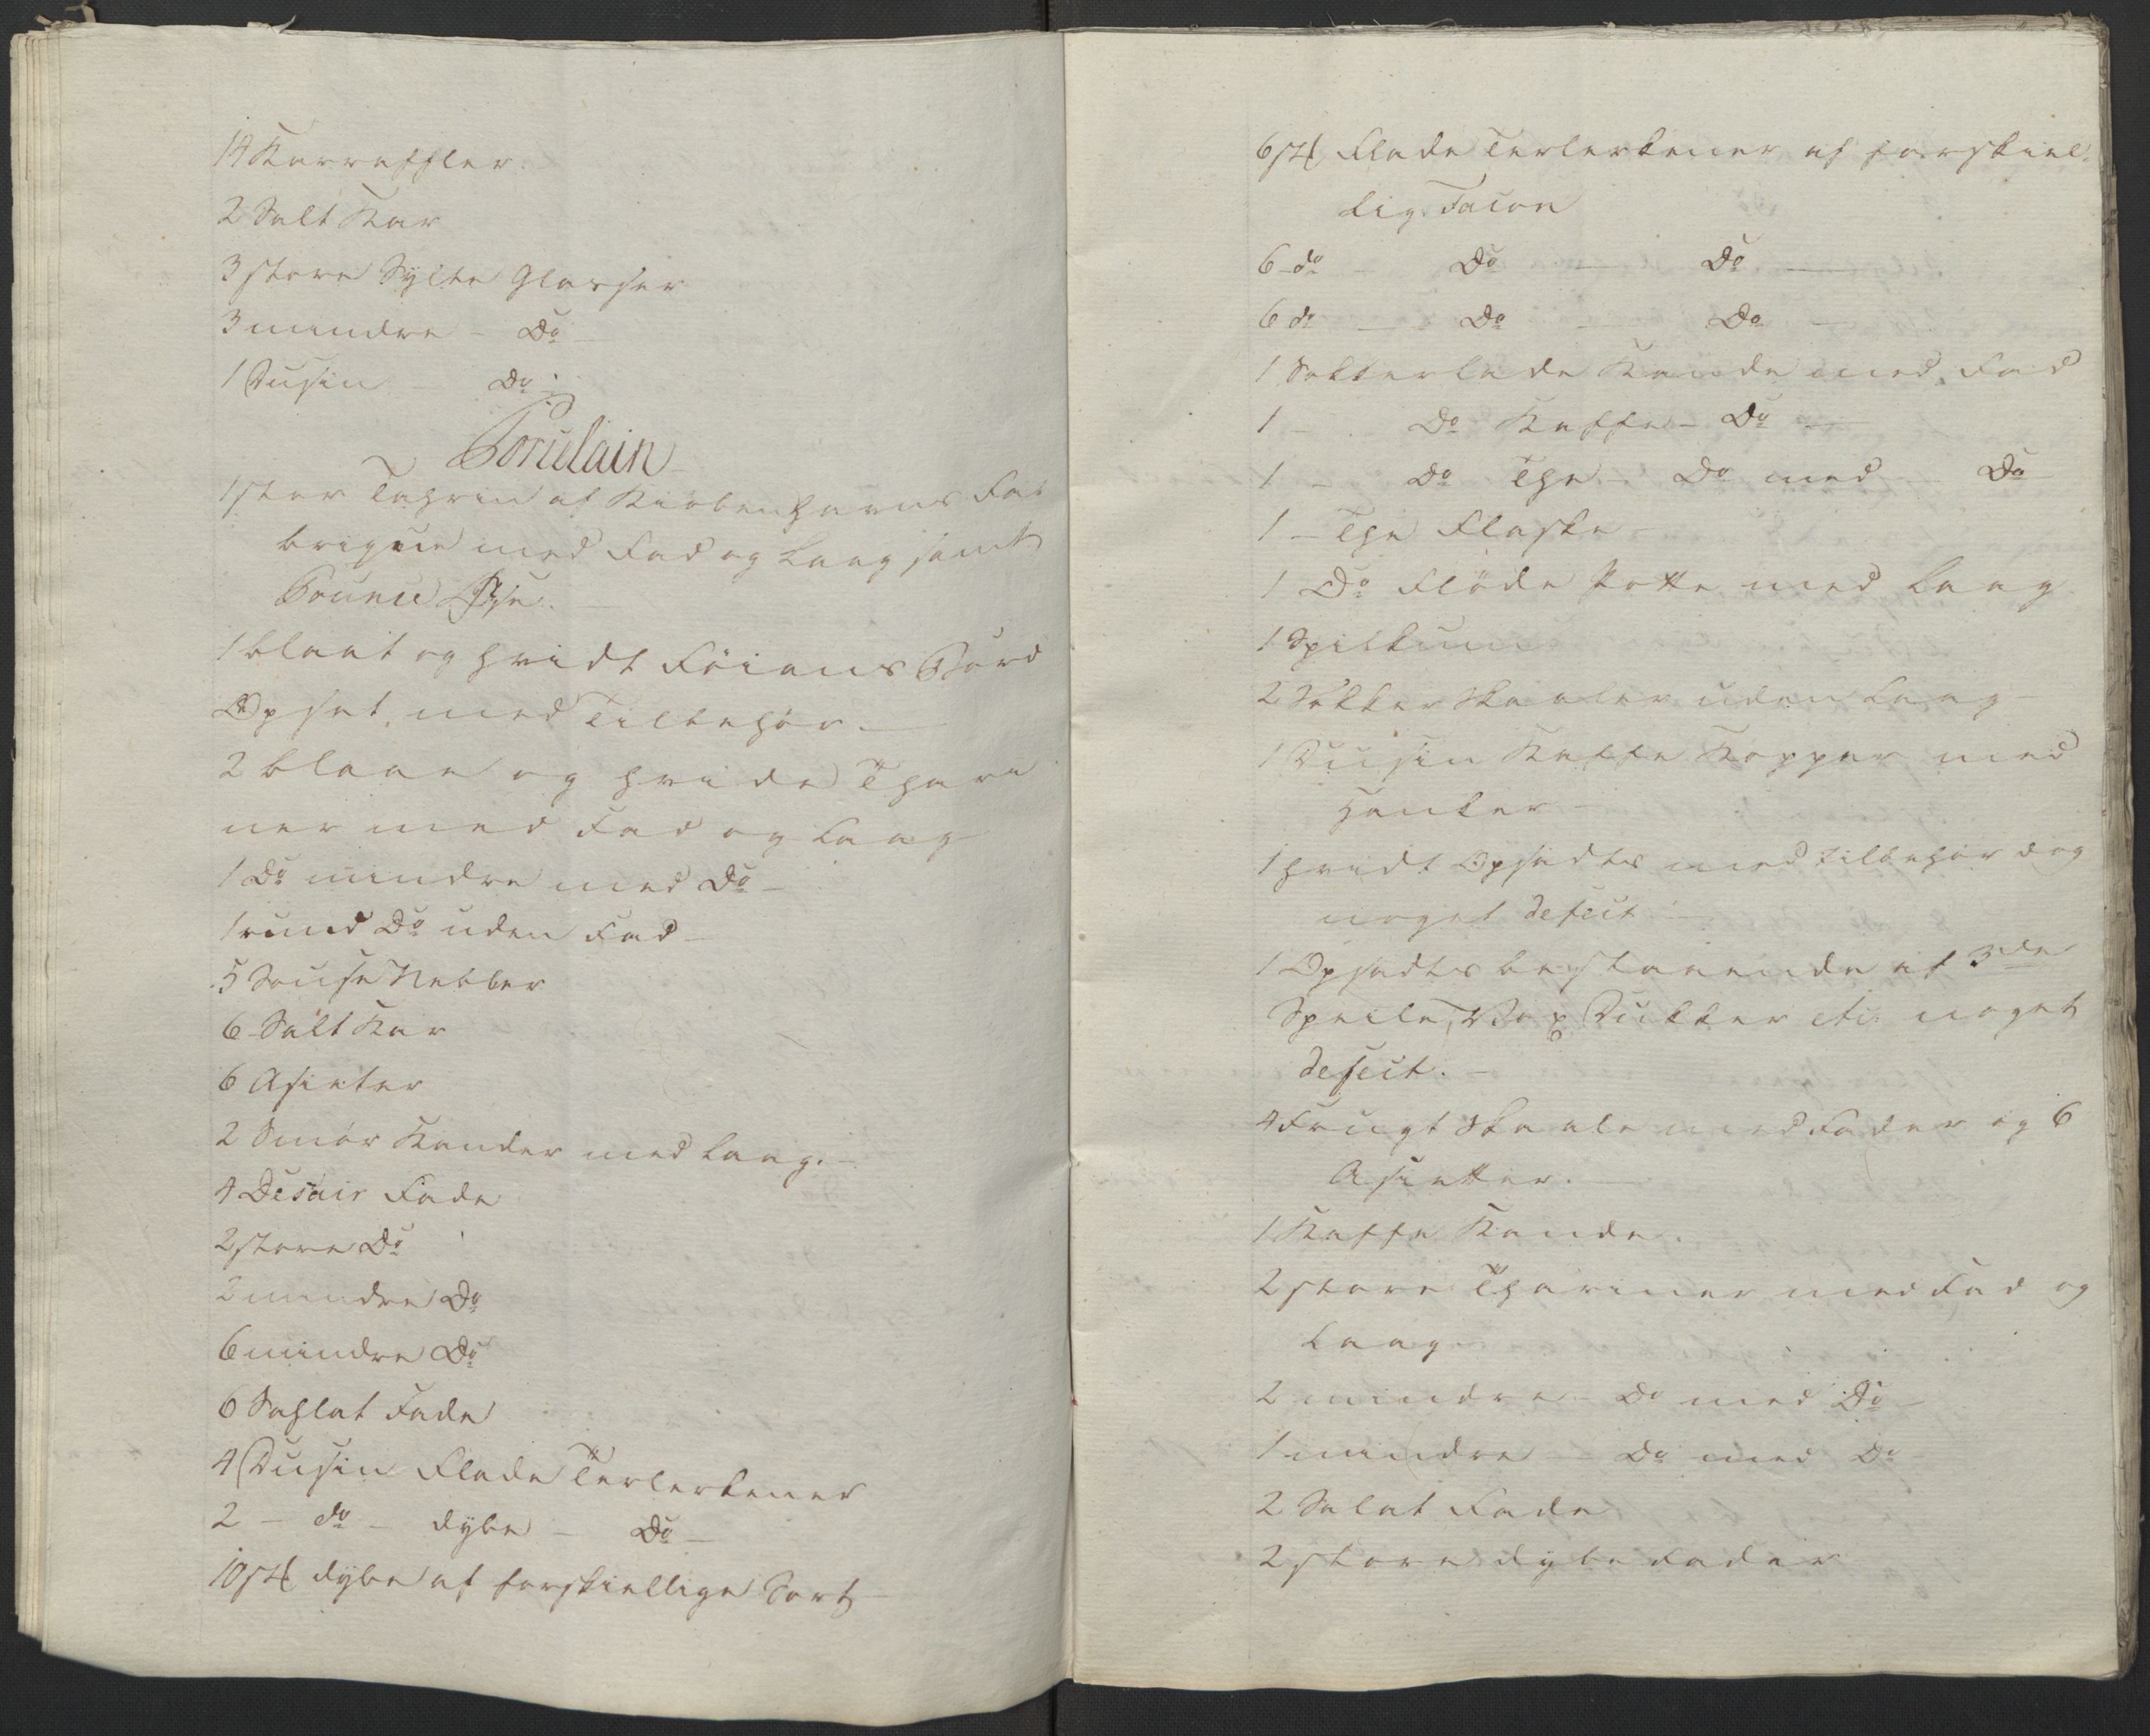 14 Karrafler.
2 Salt Kar
3 store Sylte Glasser
3 mindre - Do
1 Dusin - Do
Porcelain
1 stor Tehrin af Kiøbenhavns Fa-
brique med Fad og Laag samt
1 blaat og hvidt Föians Bord
Opsat, med Tilbehør.
2 blaae og hvide Thari
ner med Fad og Laag
1 Do mindre med Do -
1 rund Do uden Fad -
5 Souse Nebber
6 Salt Kar
6 Asieter
2 Smør Kander med Laag. -
4 Desair Fade
2 store Do
2 mindre Do
6 mindre Do
6 Sahlat Fade
4 Dusin Flade Terlerkener
2 - do - dybe - Do -
10 st dybe af forskiellige Sort -
6 st Flade Terlerkener af forskiel-
lig Facon
6 - do - Do - Do -
6 do - Do - Do -
1 Sokkerlade Kande med Fad
1 - Do Kaffe - Do -
1 - Do The - Do med - Do
1 - The Flaske -
1 Do Fløde Potte med Laag
1 Spilkum
2 Sokker Skaaler uden Laag -
1 Dusin Kaffe Kopper med
Hanker -
1 hvidt Opsadts med tilbehør dog
noget defect -
1 Opsadts bestaaende af 3de
Speile, Vox Dukker etc. noget
defect. -
4 Frugt Skaale med Fader og 6
Asietter. -
1 Kaffe Kande.
2 store Thariner med Fad og
Laag -
2 mindre - Do med Do -
1 mindre - Do med Do -
2 Salat Fade
2 store dybe Fader